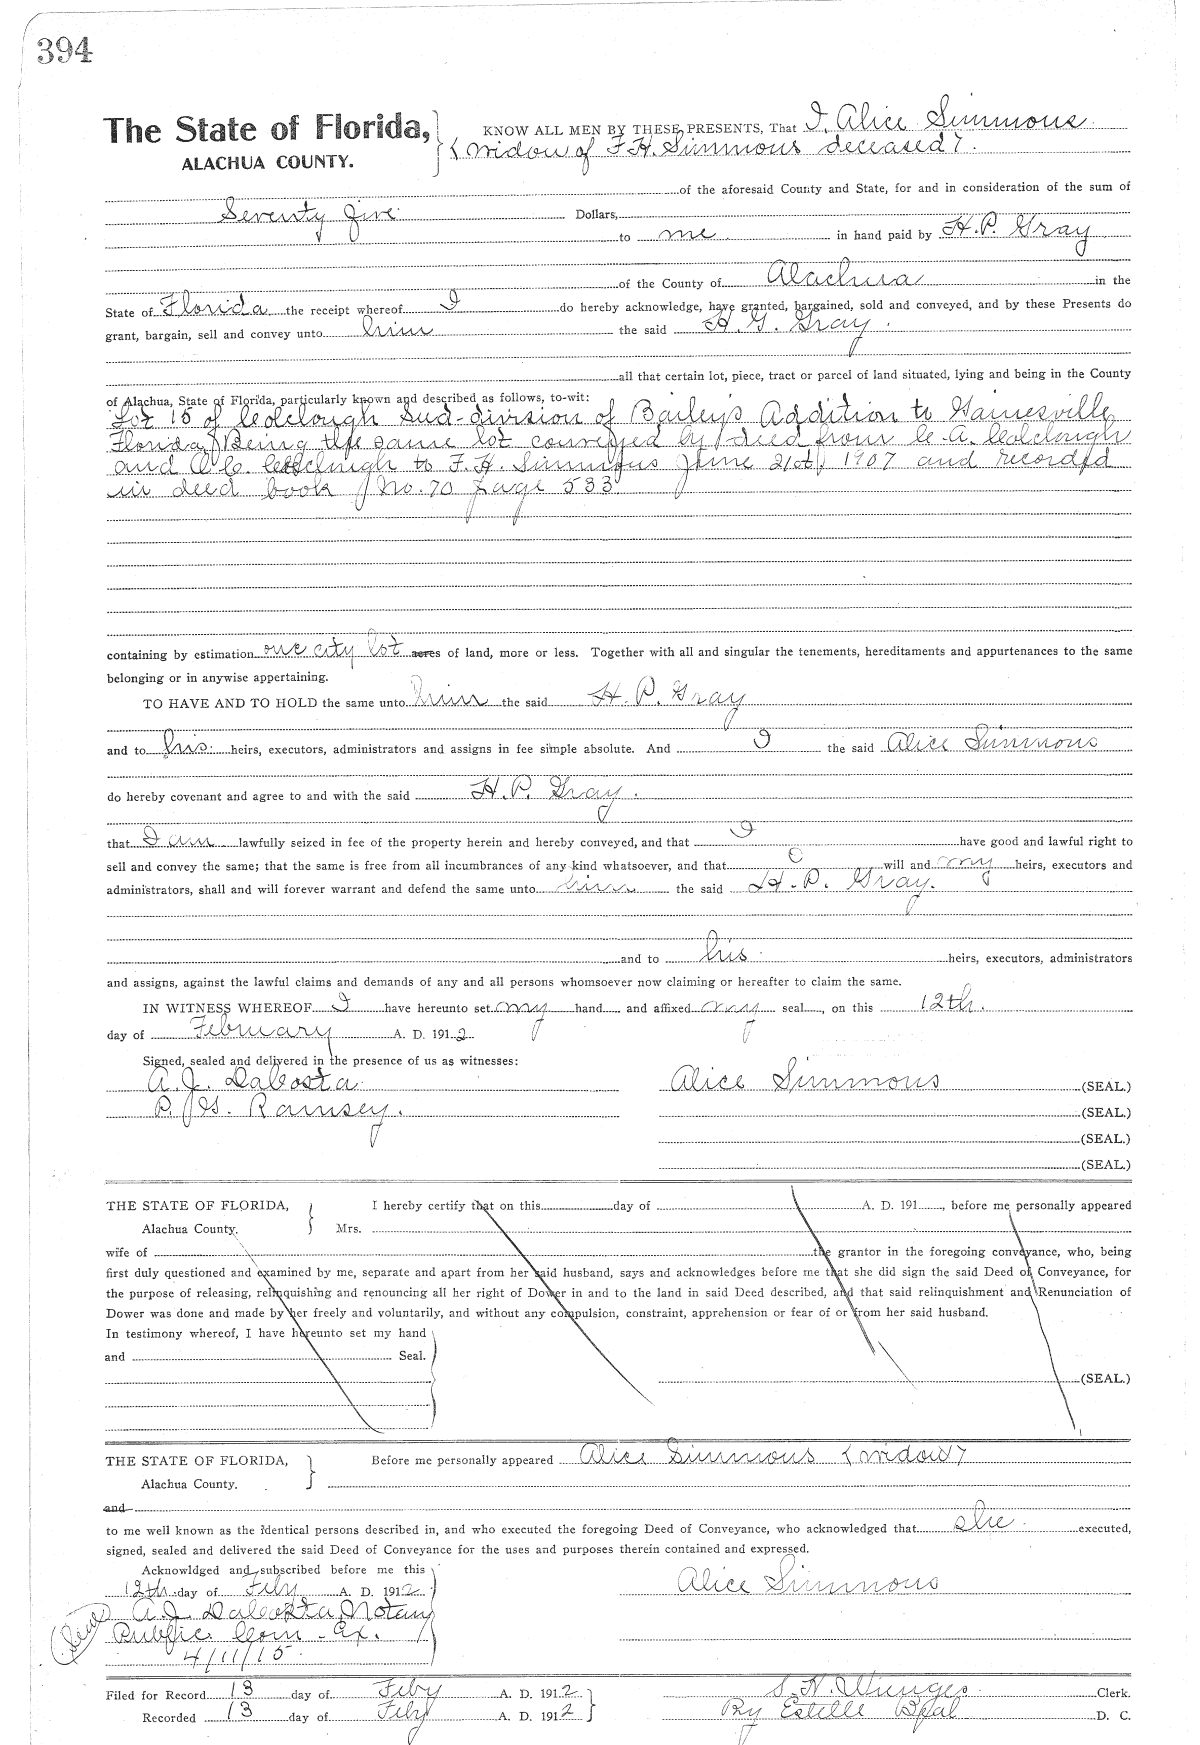 394
The State of Florida, KNOW ALL MEN BY THESE PRESENTS, That I, Alice Simmons
ALACHUA COUNTY. (widow of F.H. Simmons deceased).
of the aforesaid County and State, for and in consideration of the sum of
Seventy five Dollars,
to me in hand paid by H.P. Gray
of the County of Alachua in the
State of Florida the receipt whereof I do hereby acknowledge, have granted, bargained, sold and conveyed, and by these Presents do
grant, bargain, sell and convey unto him the said H. G. Gray.
all that certain lot, piece, tract or parcel of land situated, lying and being in the County
of Alachua, State of Florida, particularly known and described as follows, to-wit:
Lot 15 of Colclough Sud-division of Bailey's Addition to Gainesville
Florida, Being the same lot conveyed by deed from C. A. Colclough
and Colclough to F. H. Simmons June 21st, 1907 and recorded
in deed book No. 70 page 533
containing by estimation one city lot acres of land, more or less. Together with all and singular the tenements, hereditaments and appurtenances to the same
belonging or in anywise appertaining.
TO HAVE AND TO HOLD the same unto him the said H. P. Gray
and to his heirs, executors, administrators and assigns in fee simple absolute. And I the said Alice Simmons
do hereby covenant and agree to and with the said H. P. Gray.
that I am lawfully seized in fee of the property herein and hereby conveyed, and that I have good and lawful right to
sell and convey the same; that the same is free from all incumbrances of any kind whatsoever, and that will and my heirs, executors and
administrators, shall and will forever warrant and defend the same unto him the said H. P. Gray.
and to his heirs, executors, administrators
and assigns, against the lawful claims and demands of any and all persons whomsoever now claiming or hereafter to claim the same.
IN WITNESS WHEREOF I have hereunto set my hand and affixed my seal, on this 12th.
day of February A. D. 1912
Signed, sealed and delivered in the presence of us as witnesses:
A. J. DaCosta. Alice Simmons (SEAL.)
P. G. Ramsey. (SEAL.)
(SEAL.)
(SEAL.)
THE STATE OF FLORIDA, I hereby certify that on this day of A. D. 191, before me personally appeared
Alachua County. Mrs.
wife of the grantor in the foregoing conveyance, who, being
first duly questioned and examined by me, separate and apart from her said husband, says and acknowledges before me that she did sign the said Deed of Conveyance, for
the purpose of releasing, relinquishing and renouncing all her right of Dower in and to the land in said Deed described, and that said relinquishment and Renunciation of
Dower was done and made by her freely and voluntarily, and without any compulsion, constraint, apprehension or fear of or from her said husband.
In testimony whereof, I have hereunto set my hand
and Seal.
(SEAL.)
THE STATE OF FLORIDA, Before me personally appeared Alice Simmons (widow)
Alachua County.
and
to me well known as the identical persons described in, and who executed the foregoing Deed of Conveyance, who acknowledged that she executed,
signed, sealed and delivered the said Deed of Conveyance for the uses and purposes therein contained and expressed.
Acknowldged and subscribed before me this
12th day of Feby A. D. 1912 Alice Simmons
A. J. DaCosta, Notary
(Seal) Public. Com. Ex.
4/11/15.
Filed for Record 13 day of Feby A. D. 1912 S. H. Wienges Clerk.
Recorded 13 day of Feby A. D. 1912 By Estelle D. C.